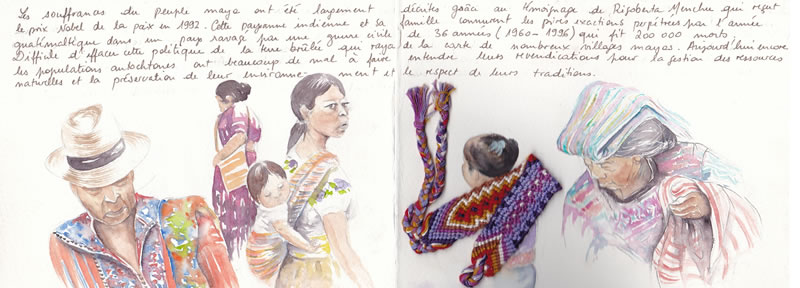 Les souffrances du peuple maya ont été largement décrites grâce au témoignage de Rigoberta Menchu qui reçut
le prix Nobel de la paix en 1992. Cette paysanne indienne et sa famille connurent les pires exactions perpétrées par l'armée
guatémaltèque dans un pays ravagé par une guerre civile de 36 années (1960-1996) qui fit 200 000 morts.
Difficile d'effacer cette politique de la terre brûlée qui raya de la carte de nombreux villages mayas. Aujourd'hui encore
les populations autochtones ont beaucoup de mal à faire entendre leurs revendications pour la gestion des ressources
naturelles et la préservation de leur environne- ment et le respect de leurs traditions.